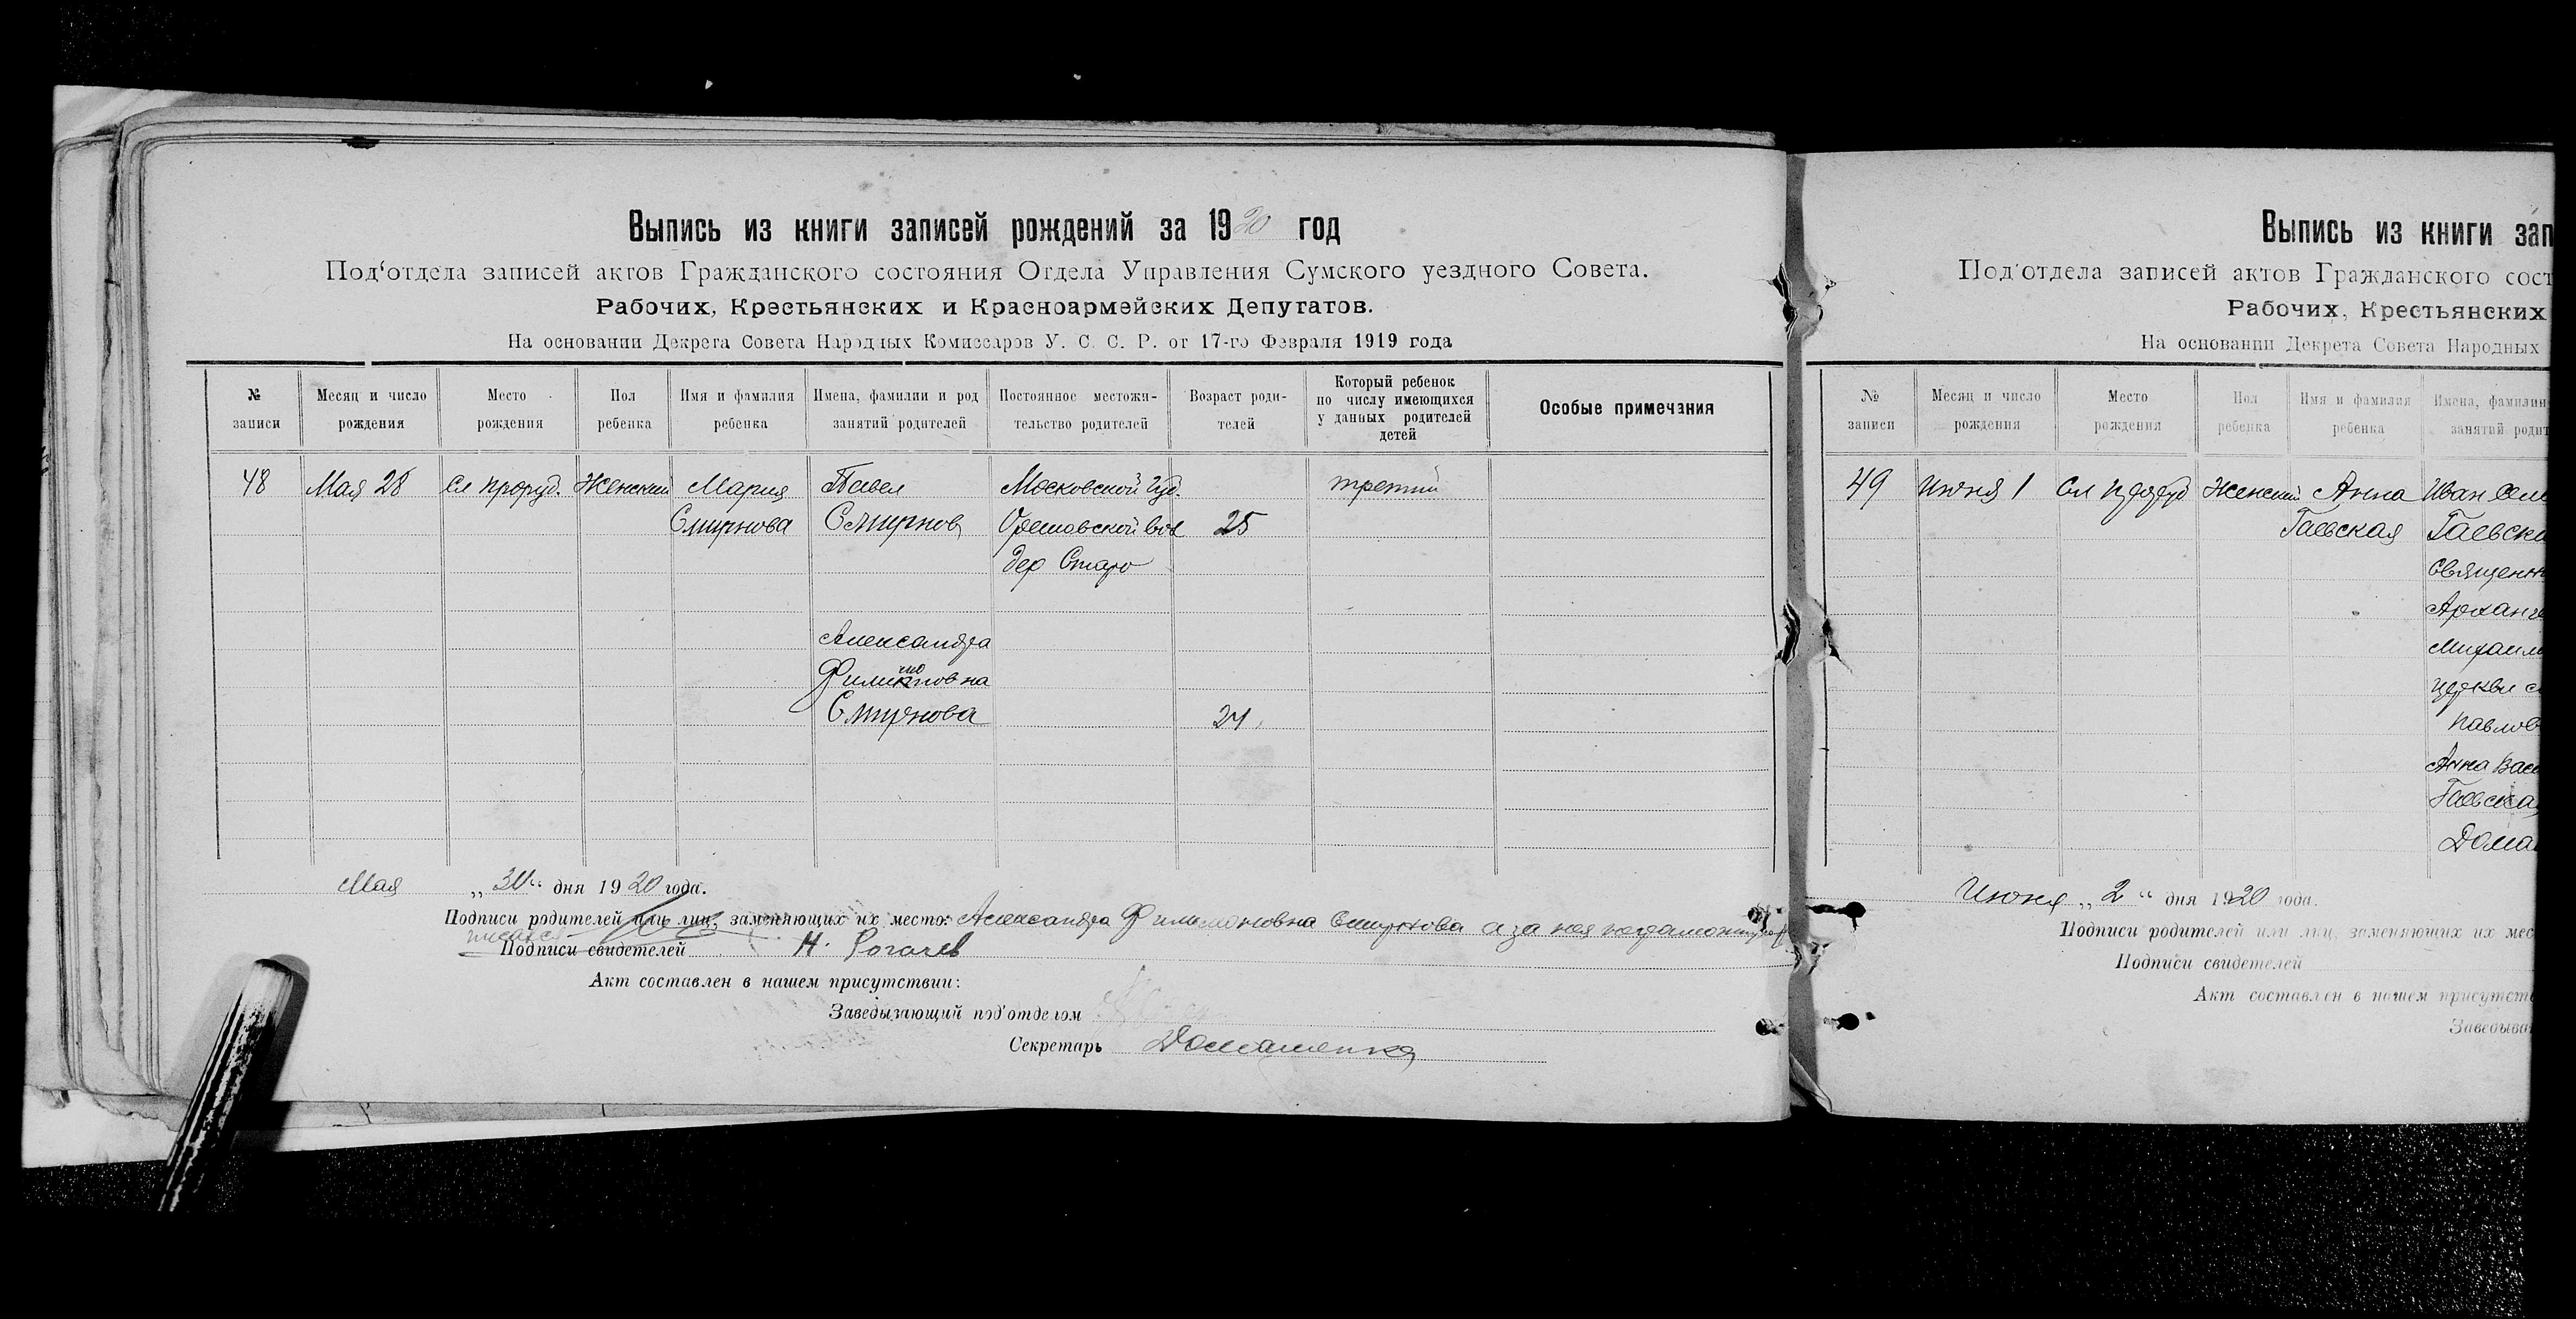 Выпись из книги записей рождений за 1920 год
Под‘отдела записей актов Гражданского состояния Отдела Управления Сумского уездного Совета.
Рабочих, Крестьянских и Красноармейских Депутатов.
На основании Декрета Совета Народных Комиссаров У. С. С. Р. от 17-го Февраля 1919 года
№ записи
Месяц и число рождения
Место рождения
Пол ребенка
Имя и фамилия ребенка
Имена, фамилии и род занятий родителей
Постоянное местожительство родителей
Возраст родителей
Который ребенок по числу имеющихся у данных родителей детей
Особые примечания
48 Мая 28 Сл Женский Мария Павел Московской Губ. третий
Смирнова Смирнов 25
дер Старо
Александра
Смирнова 24
Мая „30“ дня 1920 года.
Подписи родителей или лиц, заменяющих их место: Александра Филимоновна Смирнова а за нея
Подписи свидетелей Н. Рогачев
Акт составлен в нашем присутствии:
Заведывающий под'отделом
Секретарь Домашенко
Выпись из книги зап
Под'отдела записей актов Гражданского сост
Рабочих, Крестьянских
На основании Декрета Совета Народных
№ записи
Месяц и число рождения
Место рождения
Пол ребенка
Имя и фамилия ребенка
Имена, фамилии
занятий родит
49 Июня 1 Сл Женский Анна Иван
Гаевская Гаевск
Священн
Арханге
Михаил
церкви с
Павлов
Анна Вас
Гаевска
Дома
Июня „2“ дня 1920 года.
Подписи родителей или лиц, заменяющих их мес
Подписи свидетелей
Акт составлен в нашем присутств
Заведыва